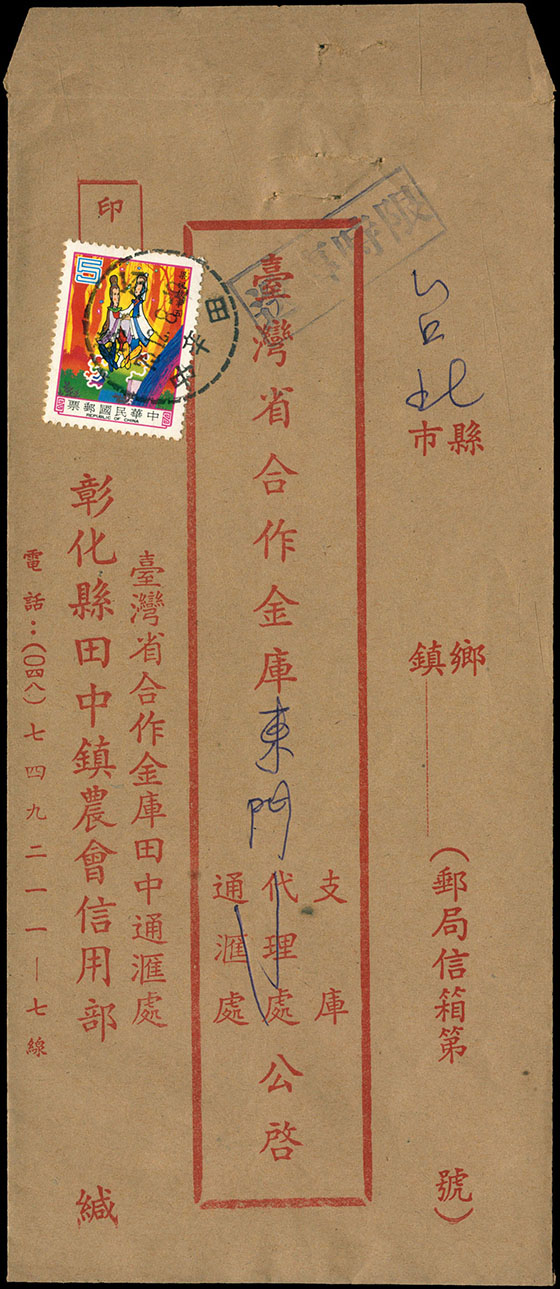 台北
縣市
鄉鎮
(郵局信箱第 號)
限時
臺灣省合作金庫東門
支庫
代理處
通匯處
公啓
印
5
中華民國郵票
REPUBLIC OF CHINA
田中
臺灣省合作金庫田中通匯處
彰化縣田中鎮農會信用部 緘
電話:(〇四八)七四九二一一—七線